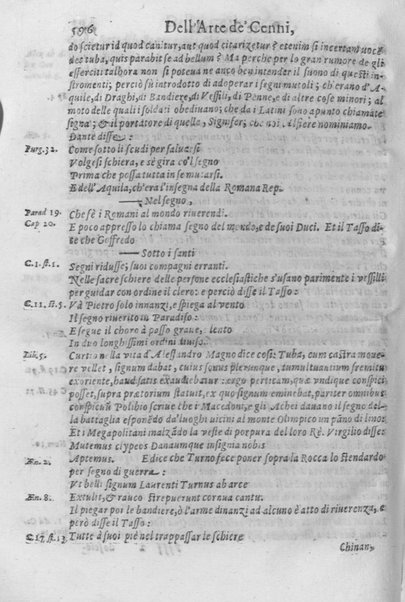 596 Dell'Arte de' Cenni,
do scietur id quod canitur, aut quod citarizetur? etenim si incertam uocē
det tuba, quis parabit se ad bellum? Ma perche per lo gran rumore de gli
esserciti talhora non si poteua ne anco ben intender il suono di questi in-
stromenti; perciò fu introdotto di adoperar i segni mutoli; chi erano d'A-
quile, di Draghi, di Bandiere, di Vessilli, di Penne, e di altre cose minori; al
moto delle quali i soldati obediuano; che da i Latini sono apunto chiamate
signa; & il portatore di quello, Signifer, che noi Alfiere nominiamo.
Dante disse:
Purg. 32. Come sotto li scudi per saluarsi
Volgesi schiera, e sè gira co'l segno
Prima che possa tutta in se mutarsi.
E dell'Aquila, ch'era l'insegna della Romana Rep.
Nel segno,
Parad 19. Che fè i Romani al mondo riuerendi.
Cap 20. E poco appresso lo chiama segno del mondo, e de suoi Duci. Et il Tasso di-
te che Goffredo
Sotto i santi
C. 1. st. 1. Segni ridusse; suoi compagni erranti.
Nelle sacre schiere delle persone ecclesiastiche s'usano parimente i vessilli
per guidar con ordine il clero: e perciò disse il Tasso:
C. 11. st. 5. Và Pietro solo innanzi, e spiega al vento
Il segno riuerito in Paradiso:
E segue il choro à passo graue, lento
In duo longhissimi ordini diuiso.
Lib. 5. Curtio nella vita d'Alessandro Magno dice così: Tuba, cum castra moue-
re vellet, signum dabat, cuius sonus plerunque, tumultuantium fremitu
exoriente, haud satis exaudiebatur: ergo perticam, quæ vndique conspici
posset, supra prætorium statuit, ex quo signum eminebat, pariter omnibus
conspicuū Polibio scriue che i Macedoni, e gli Achei dauano il segno del-
la battaglia esponēdo da'luoghi uicini al monte Olimpico un pāno di lino:
Et i Megapolitani inalzādo la veste di porpora del loro Rè. Virgilio disse:
Mutemus clypeos Danaumque insignia nobis
Æn. 2. Aptemus. E dice che Turno fece poner sopra la Rocca lo stendardo
per segno di guerra:
Vt belli signum Laurenti Turnus ab arce
Æn. 8. Extulit, & rauco strepuerunt cornua cantu.
Il piegar poi le bandiere, ò l'arme dinanzi ad alcuno è atto di riuerenza, e
però disse il Tasso:
C. 17. st. 13. Tutte à suoi piè nel trappassar le schiere
Chinan,